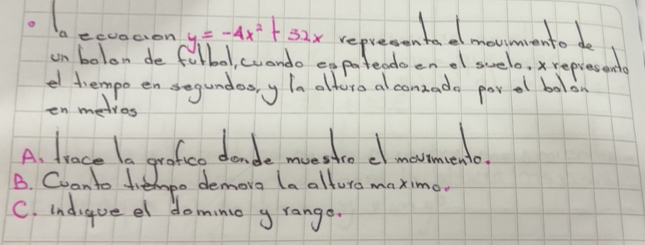 • la ecuacion y = -4x² + 32x representa el movimiento de
un balon de futbol, cuando es pateado en el suelo. x representa
el tiempo en segundos, y la altura alcanzada por el balon
en metros
A. trace la grafica donde muestre el movimiento.
B. Cuanto tiempo demora la altura maxima.
C. indique el dominio y rango.